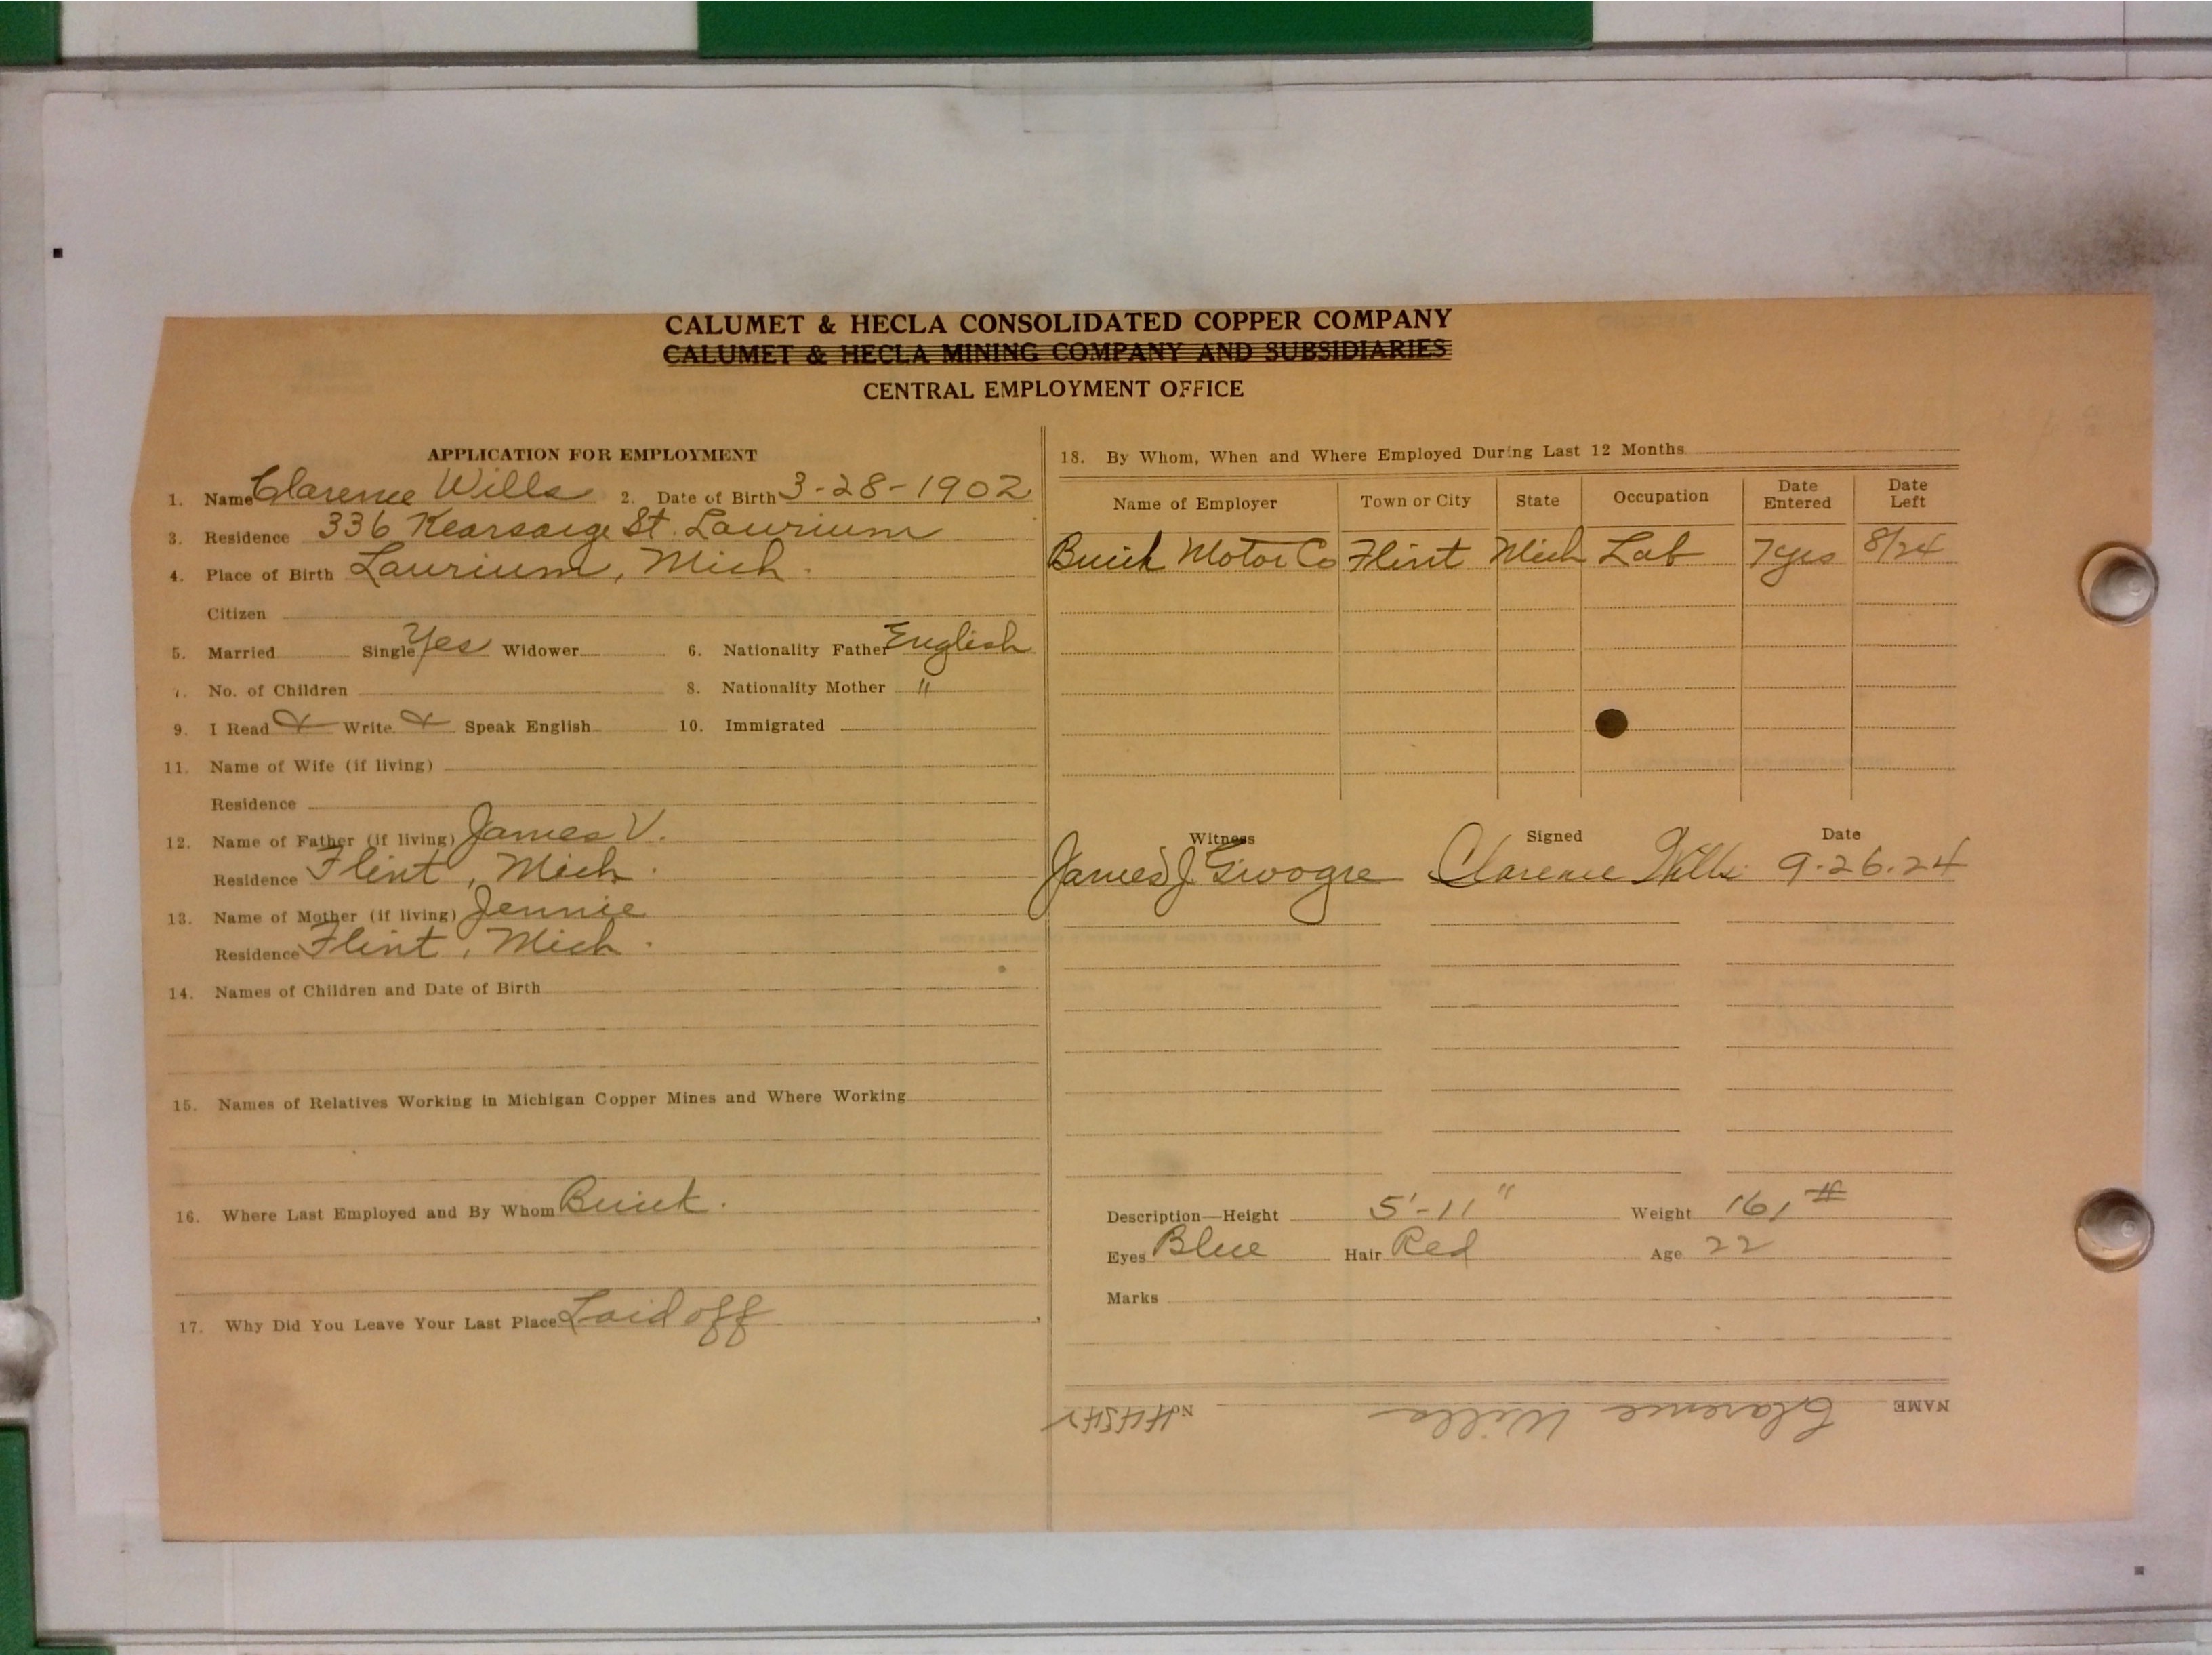 CALUMET & HECLA CONSOLIDATED COPPER COMPANY
CALUMET & HECLA MINING COMPANY AND SUBSIDIARIES
CENTRAL EMPLOYMENT OFFICE
APPLICATION FOR EMPLOYMENT
1. Name Clarence Wills 2. Date of Birth 3-28-1902
3. Residence 336 Kearsarge St. Laurium
4. Place of Birth Laurium, Mich.
Citizen
5. Married Single Yes Widower 6. Nationality Father English
7. No. of Children 8. Nationality Mother "
9. I Read Write Speak English 10. Immigrated
11. Name of Wife (if living)
Residence
12. Name of Father (if living) James V.
Residence Flint, Mich.
13. Name of Mother (if living) Jennie
Residence Flint, Mich.
14. Names of Children and Date of Birth
15. Names of Relatives Working in Michigan Copper Mines and Where Working
16. Where Last Employed and By Whom Buick.
17. Why Did You Leave Your Last Place Laid off
18. By Whom, When and Where Employed During Last 12 Months
Name of Employer Town or City State Occupation Date Entered Date Left
Buick Motor Co Flint Mich Lab 7 yrs 8/24
Witness Signed Date
James J. Clarence Wills 9-26-24
Description—Height 5'-11" Weight 161 #
Eyes Blue Hair Red Age 22
Marks
NAME Clarence Wills No.